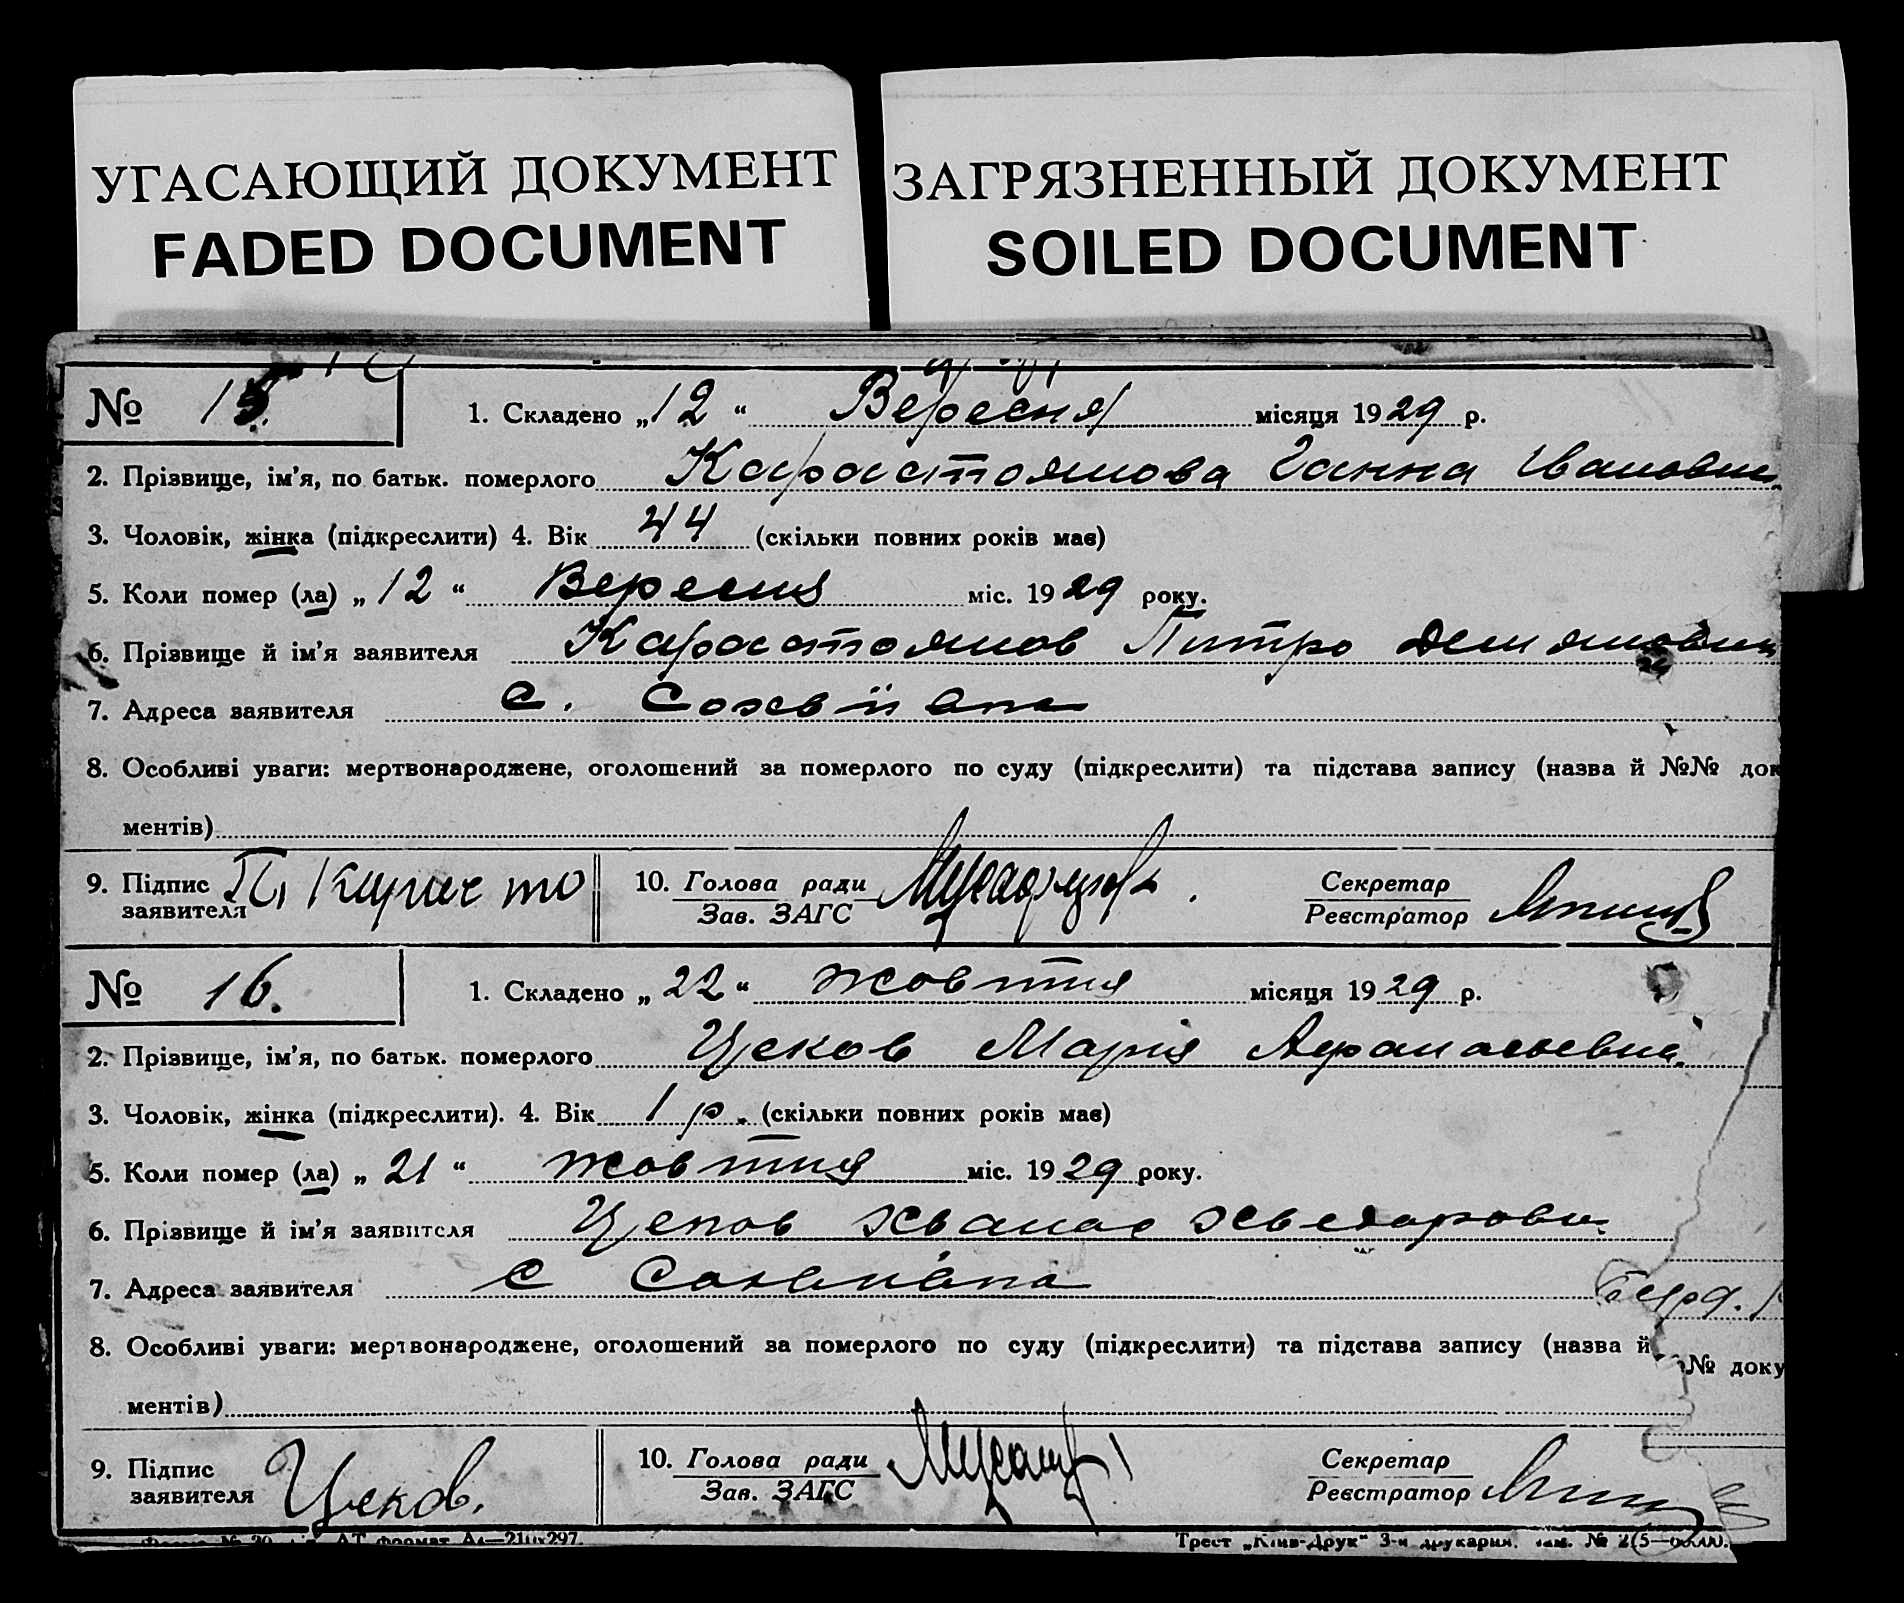 УГАСАЮЩИЙ ДОКУМЕНТ
FADED DOCUMENT
ЗАГРЯЗНЕННЫЙ ДОКУМЕНТ
SOILED DOCUMENT
№ 15. 1. Складено „12“ Вересня місяця 1929 р.
2. Прізвище, ім'я, по батьк. померлого Карастоянова Ганна Івановна
3. Чоловік, жінка (підкреслити) 4. Вік 44 (скільки повних років має)
5. Коли помер (ла) „12“ Вересня міс. 1929 року.
6. Прізвище й ім'я заявителя Карастоянов Питро
7. Адреса заявителя с.
8. Особливі уваги: мертвонароджене, оголошений за померлого по суду (підкреслити) та підстава запису (назва й №№ док
ментів)
9. Підпис заявителя П. 10. Голова ради Зав. ЗАГС Секретар Реєстратор
№ 16. 1. Складено „22“ жовтня місяця 1929 р.
2. Прізвище, ім'я, по батьк. померлого Цеков Марія
3. Чоловік, жінка (підкреслити). 4. Вік 1 р. (скільки повних років має)
5. Коли помер (ла) „21“ жовтня міс. 1929 року.
6. Прізвище й ім'я заявителя
7. Адреса заявителя с
8. Особливі уваги: мертвонароджене, оголошений за померлого по суду (підкреслити) та підстава запису (назва й № доку
ментів)
9. Підпис заявителя Цеков. 10. Голова ради Зав. ЗАГС Секретар Реєстратор
Трест „Київ-Друк“